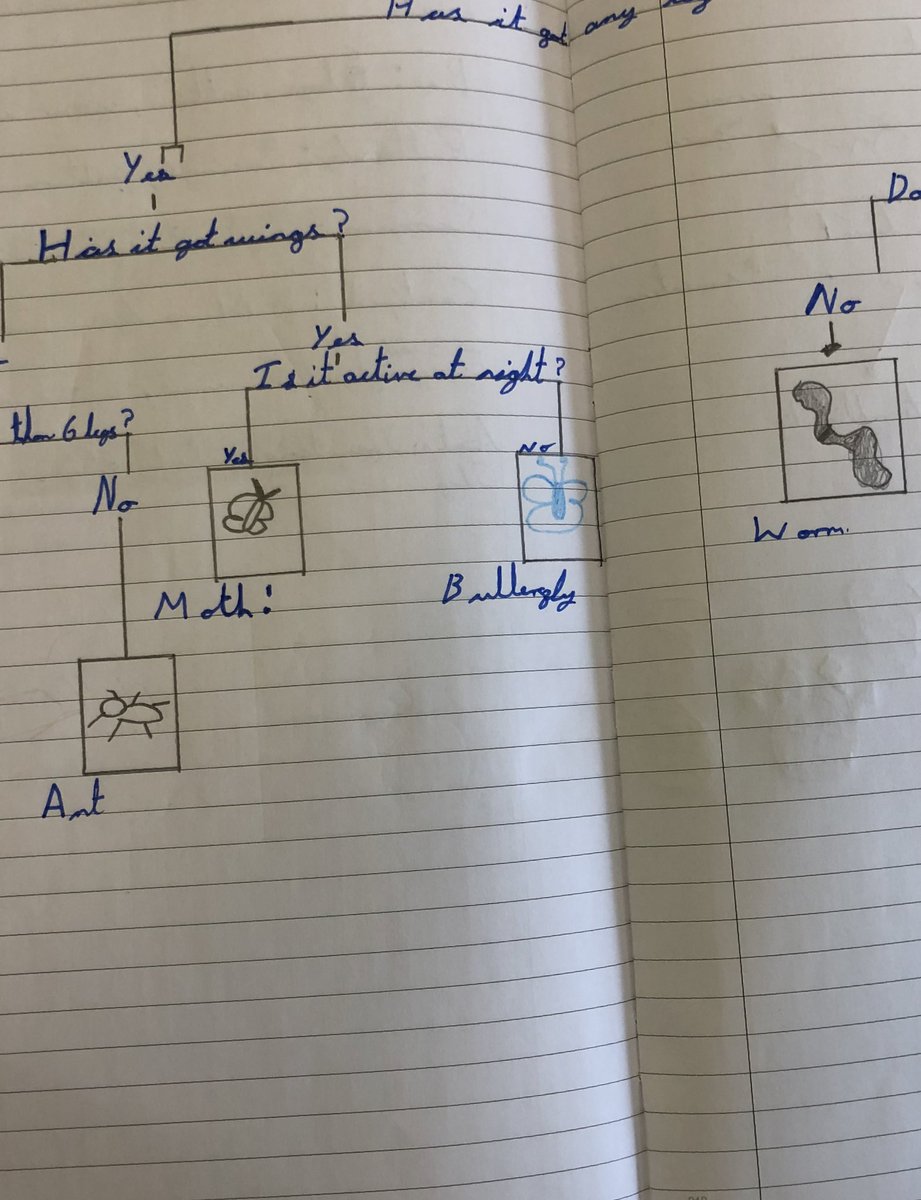 Has it got any
Yes
Has it got wings?
Do
No
Yes
Is it active at night?
than 6 legs?
Yes
No
No
Worm.
Moth!
Butterfly
Ant